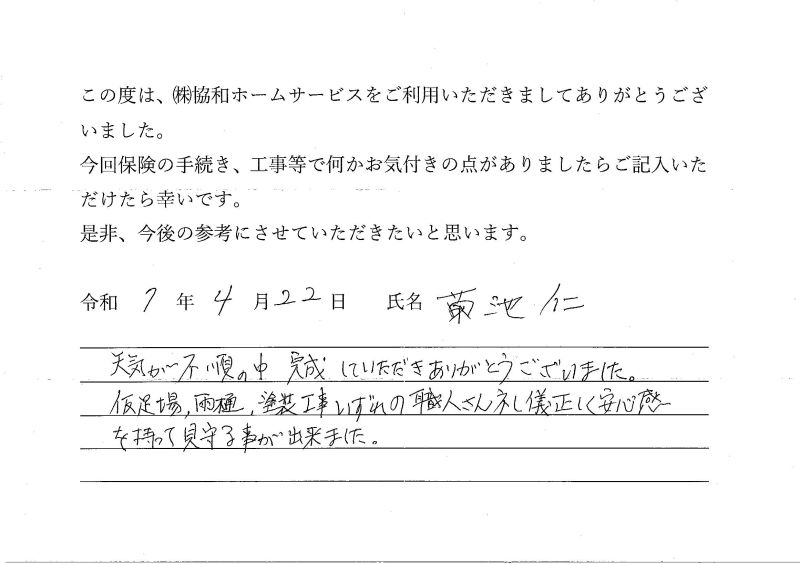 この度は、㈱協和ホームサービスをご利用いただきましてありがとうござ
いました。
今回保険の手続き、工事等で何かお気付きの点がありましたらご記入いた
だけたら幸いです。
是非、今後の参考にさせていただきたいと思います。
令和 7 年 4 月 22 日 氏名 菊池 仁
天気が不順の中 完成していただきありがとうございました。
仮足場，雨樋，塗装工事いずれの職人さん礼儀正しく安心感
を持って見守る事が出来ました。